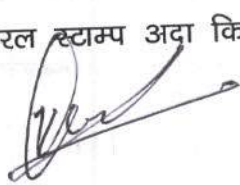 रल स्टाम्प अदा कि